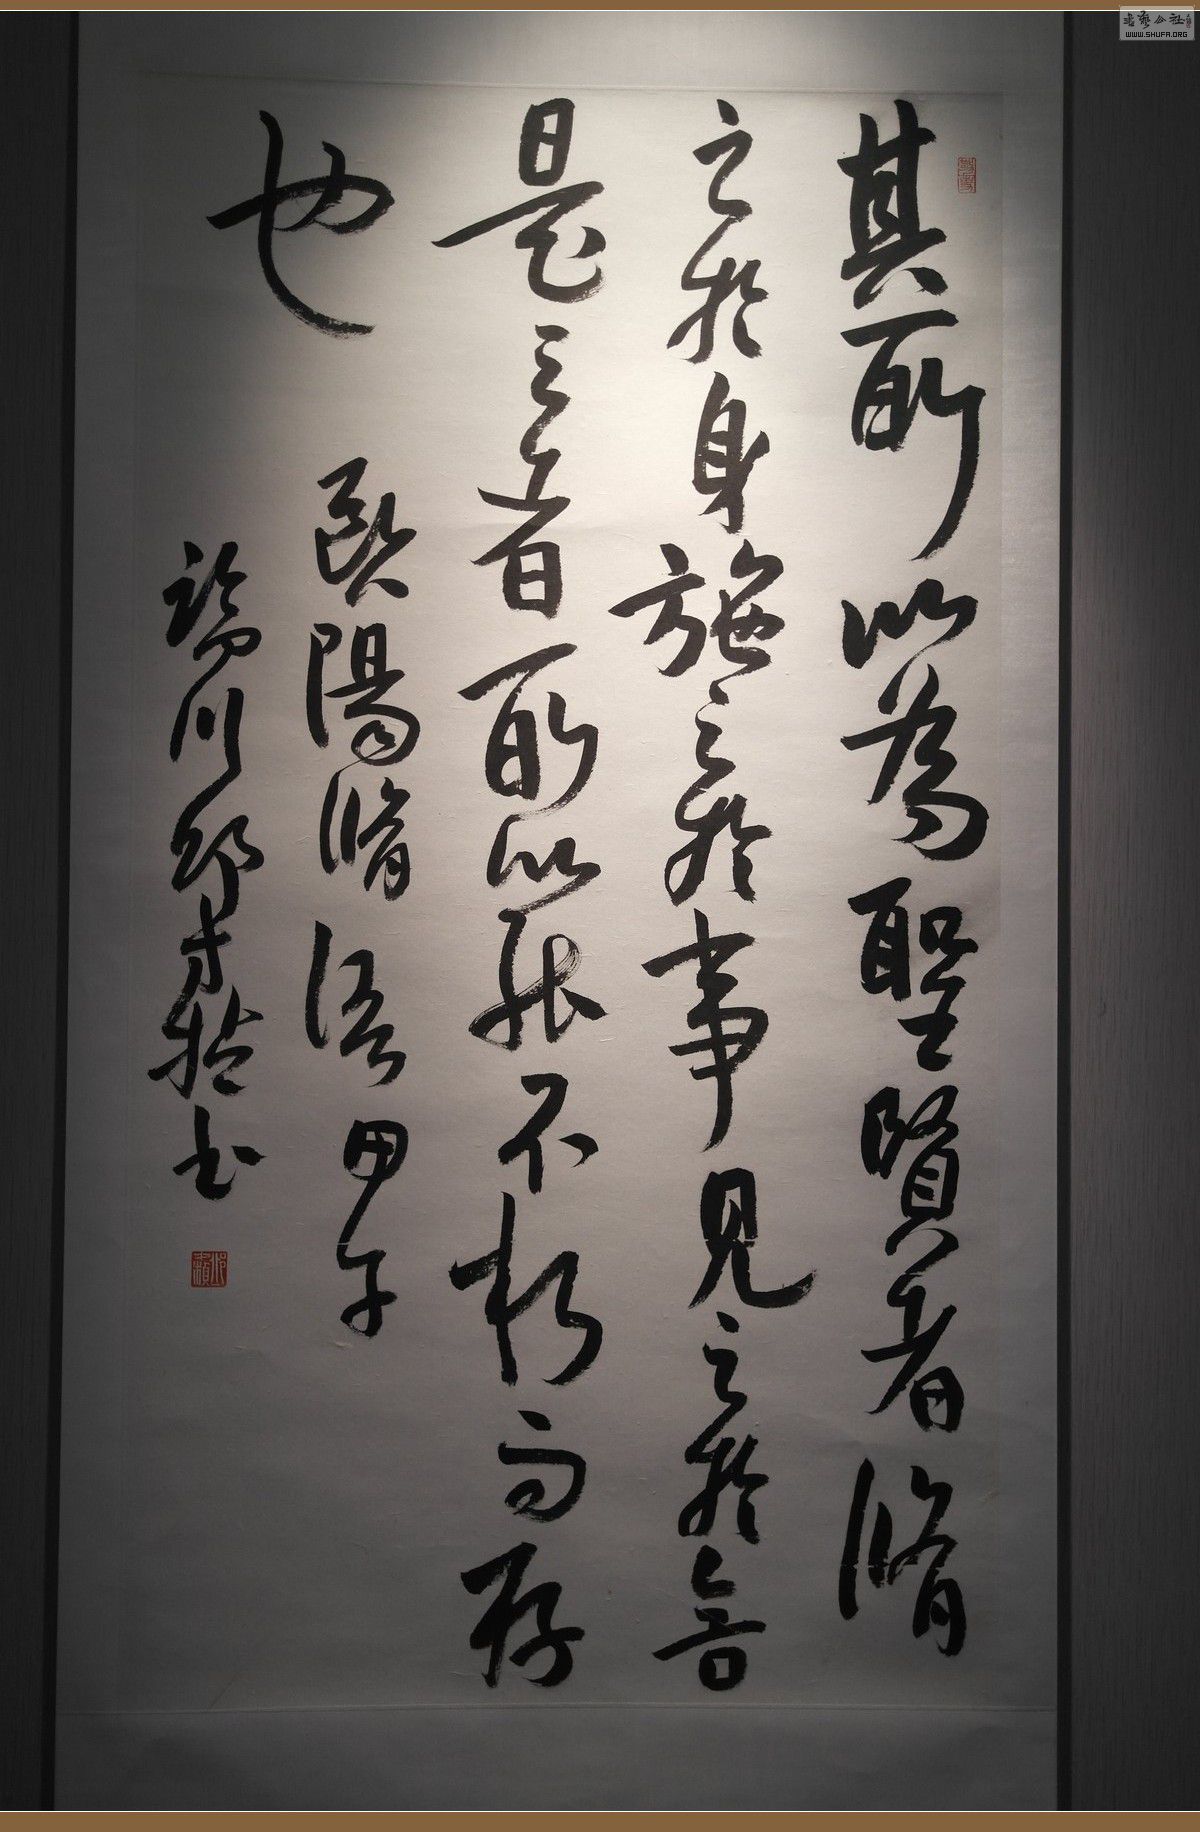 其所以為聖賢者脩
之於身施之於事見之於言
是三者所以能不朽而存
也
歐陽脩語甲午
臨川邱才楨書
書藝公社
WWW.SHUFA.ORG